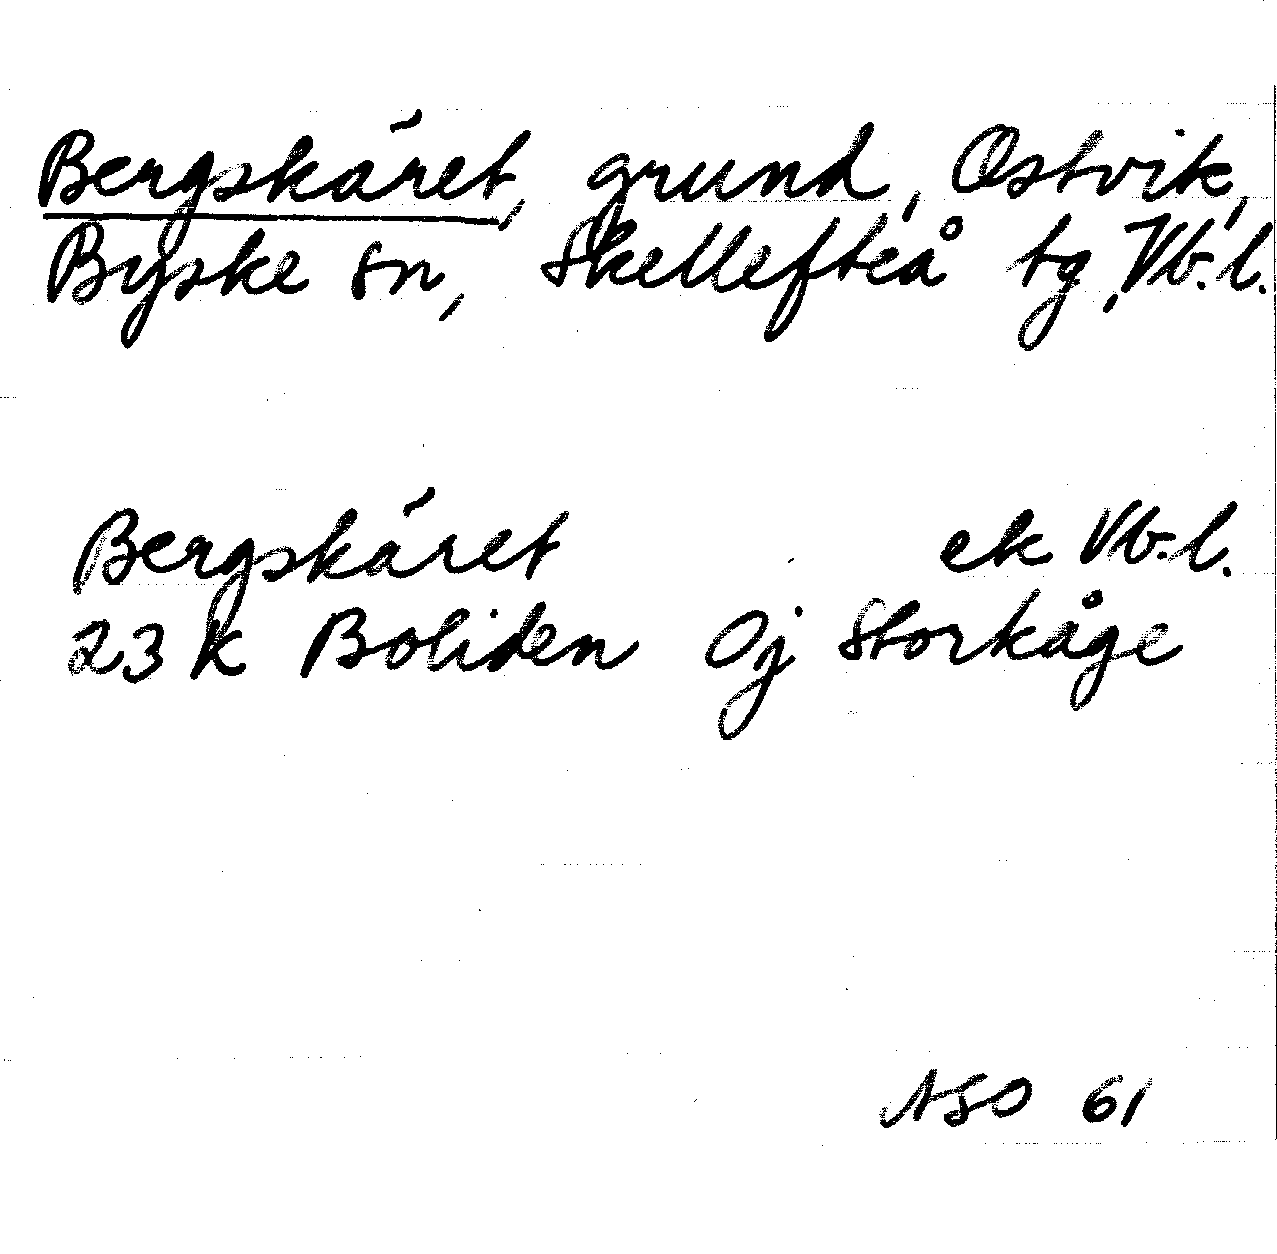 Bergskäret, grund, Ostvik,
Byske sn, Skellefteå tg, Vb.l.
Bergskäret ek Vb.l.
23 K Boliden Oj Storkåge
ASO 61